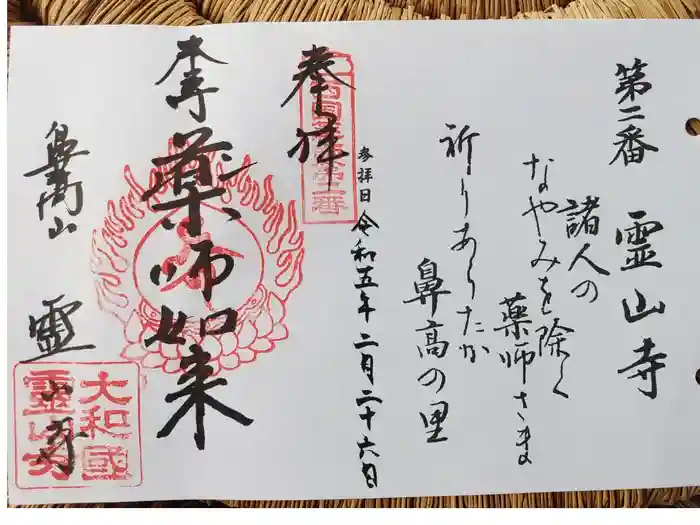 第二番 霊山寺
諸人の
なやみを除く
薬師さま
祈りあらたか
鼻高の里
奉拝
参拝日 令和五年二月二十六日
本尊
薬師如来
鼻高山 霊山寺
大和國
靈山寺